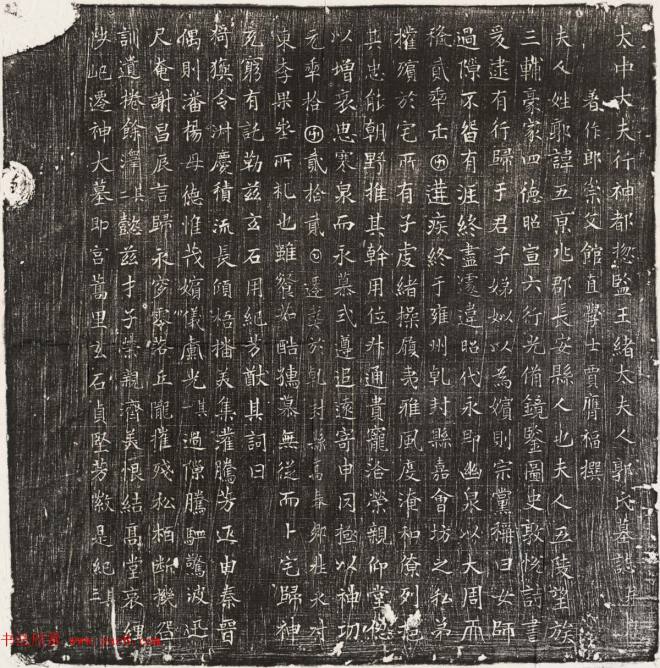 太中大夫行神都揔監王緒太夫人郭氏墓誌
著作郎崇文館直學士賈膺福撰
夫人姓郭諱五京兆郡長安縣人也夫人五陵望族
三輔豪家四德昭宣六行光備鏡鑒圖史敦悅詩書
爰逮有行歸于君子娣姒以為嬪則宗黨稱曰女師
過隙不留有涯終盡遽違昭代永即幽泉以大周而
貳年五遘疾終于雍州乹封縣嘉會坊之私第
權殯於宅所有子虔緒操履夷雅風度淹和僚列挹
其忠能朝野推其幹用位升通貴寵洽榮親仰堂
以增哀思寒泉而永慕式遵追遠寄申罔極以神功
元年拾貳拾貳遷葬於乹封縣高春鄉
東李果所禮也雖餐荼酷獨慕無從而卜宅歸神
克窮有託勒茲玄石用紀芳猷其詞曰
猗猗令淑慶積流長傾梧播美集灌騰芳匹由秦晉
偶則潘揚母德惟茂嬪儀光其一過隙騰駟驚波迅
尺奄謝昌辰言歸永穸零落丘隴摧殘松栢斷機
訓遺捲餘澤其二懿茲才子榮親濟美恨結髙堂哀
屺遷神大墓即宮蒿里玄石貞堅芳徽是紀其三